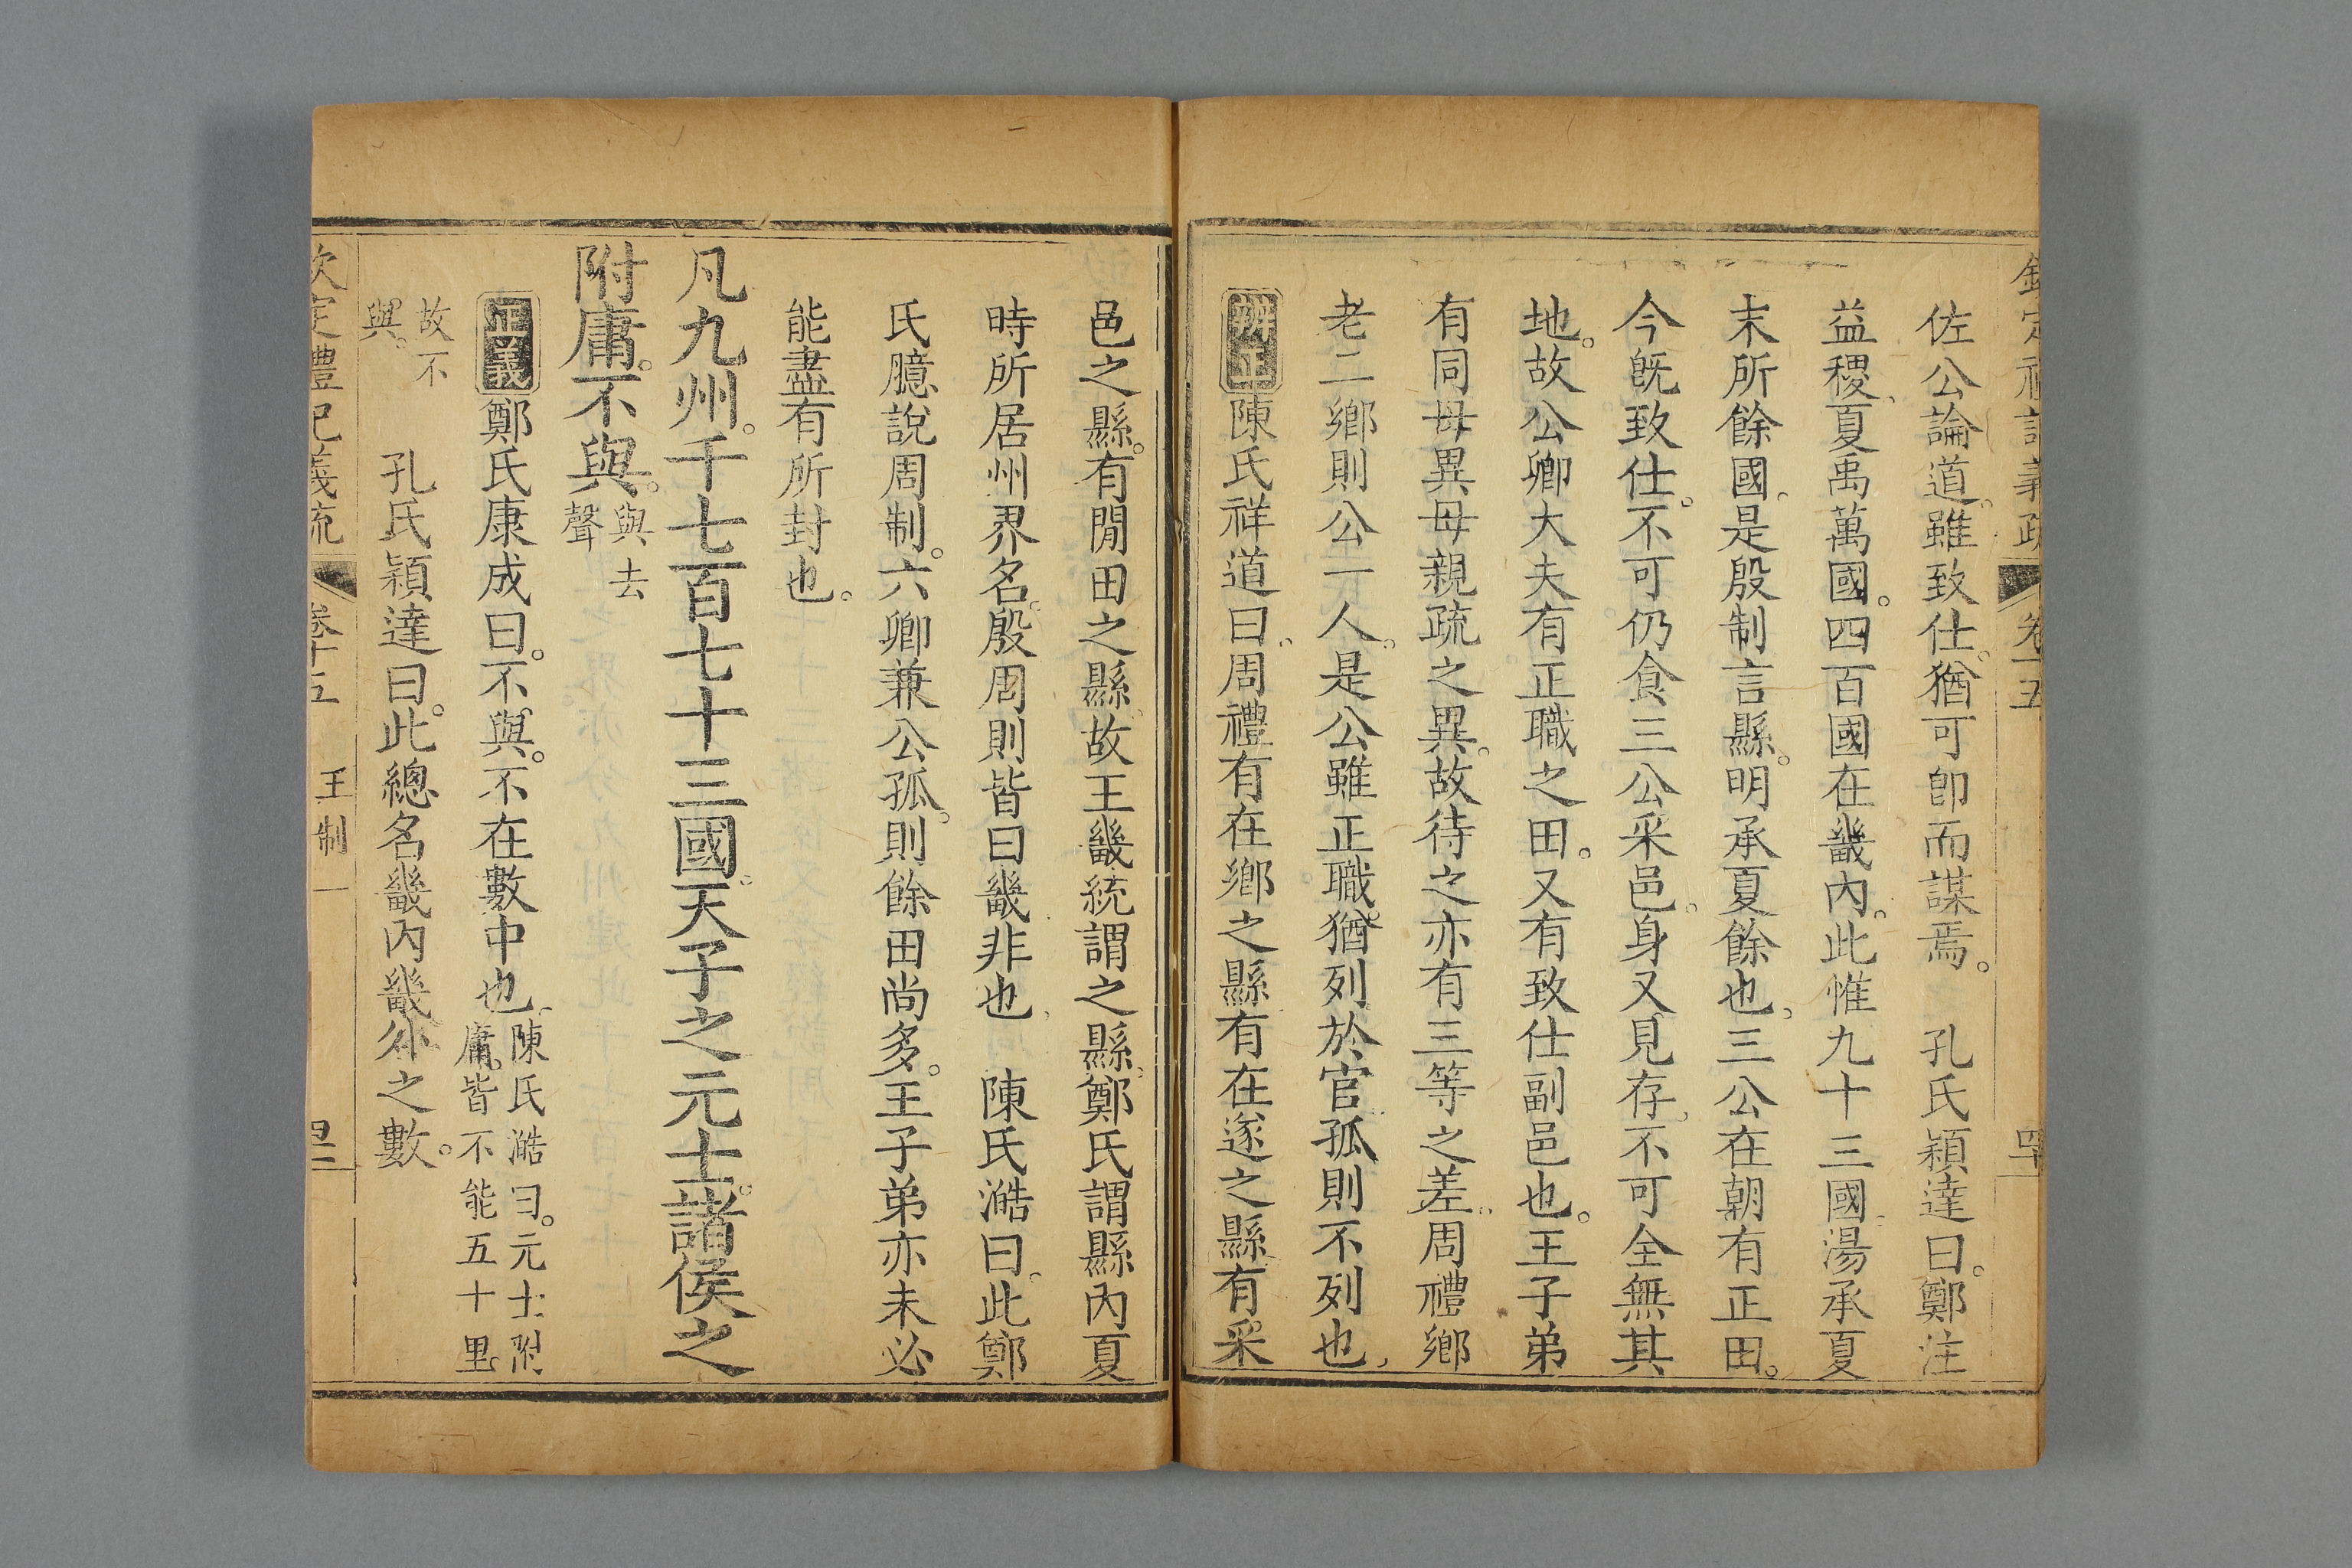 佐公論道。雖致仕。猶可卽而謀焉。　孔氏穎達曰。鄭注
益稷。夏禹萬國。四百國在畿內。此惟九十三國。湯承夏
末所餘國。是殷制言縣。明承夏餘也。三公在朝有正田。
今旣致仕。不可仍食三公采邑。身又見存。不可全無其
地。故公卿大夫有正職之田。又有致仕副邑也。王子弟
有同母異母親疏之異。故待之亦有三等之差。周禮鄉
老二鄉則公一人。是公雖正職。猶列於官。孤則不列也。
辨正陳氏祥道曰。周禮有在鄉之縣有在遂之縣有采
邑之縣。有閒田之縣。故王畿統謂之縣。鄭氏謂縣內夏
時所居州界名。殷周則皆曰畿非也。　陳氏澔曰。此鄭
氏臆說周制。六卿兼公孤。則餘田尚多。王子弟亦未必
能盡有所封也。
凡九州。千七百七十三國。天子之元士。諸侯之
附庸。不與。與去聲
正義鄭氏康成曰。不與。不在數中也。陳氏澔曰。元士附庸。皆不能五十里。
故不與。　孔氏穎達曰。此總名畿內畿外之數。
欽定禮記義疏　卷十五　王制　一